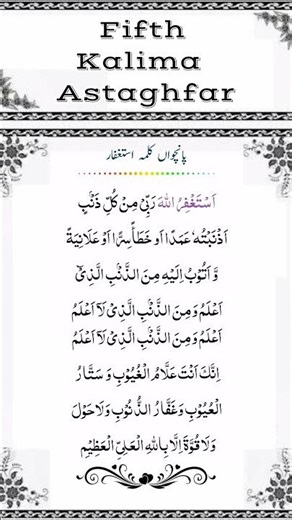 Fifth
Kalima
Astaghfar
پانچواں کلمہ استغفار
اَسْتَغْفِرُ اللهَ رَبِّیْ مِنْ کُلِّ ذَنْۢبٍ
اَذْنَبْتُهٗ عَمَدًا اَوْ خَطَأً سِرًّا اَوْ عَلَانِیَةً
وَّ اَتُوْبُ اِلَیْهِ مِنَ الذَّنْۢبِ الَّذِیْٓ
اَعْلَمُ وَ مِنَ الذَّنْۢبِ الَّذِیْ لَآ اَعْلَمُ
اَعْلَمُ وَ مِنَ الذَّنْۢبِ الَّذِیْ لَآ اَعْلَمُ
اِنَّکَ اَنْتَ عَلَّامُ الْغُیُوْبِ وَ سَتَّارُ
الْعُیُوْبِ وَ غَفَّارُ الذُّنُوْبِ وَلَا حَوْلَ
وَلَا قُوَّةَ اِلَّا بِاللهِ الْعَلِیِّ الْعَظِیْمِ